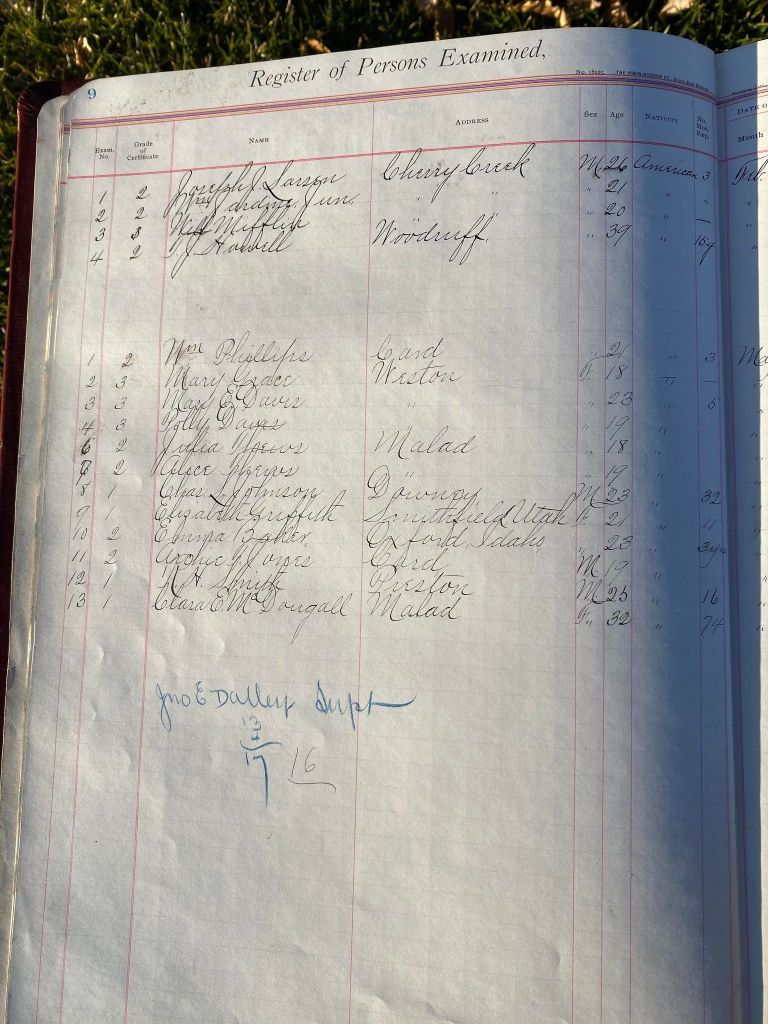 9
Register of Persons Examined,
No.
Exam. No. Grade of Certificate NAME ADDRESS Sex Age NATIVITY No. Mos. Exp. DATE O
Month
1 2 Joseph J. Larsen Cherry Creek M 26 American 3 Feb.
2 2 Jun. " " " 21 " "
3 3 Will Mifflin " 20 " —
4 2 T. J. Howell Woodruff " 39 "
1 2 Wm Phillips Card " 21 " 3 Ma
2 3 Mary Grace Weston F. 18 " —
3 3 Mary E. Davis " " 23 " 5
4 3 Davis " 19 "
6 2 Julia Mews Malad " 18 "
7 2 Alice Mews " " 19
8 1 Chas. L. Johnson Downey M 23 " 32
9 1 Elizabeth Griffith Smithfield, Utah F. 21 " 11
10 2 Emma Baker Oxford, Idaho " 23 "
11 2 Archie J Jones Card M 19 "
12 1 Smyth Preston M 25 " 16
13 1 Clara E. McDougall Malad F. 32 " 74
Jno E Dalley Supt
13
4
17 16